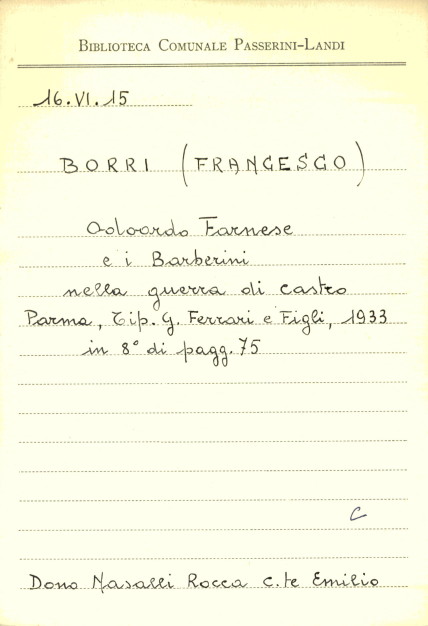 BIBLIOTECA COMUNALE PASSERINI-LANDI
16.VI.15
BORRI (FRANCESCO)
Odoardo Farnese
e i Barberini
nella guerra di castro
Parma, Tip. G. Ferrari e Figli, 1933
in 8° di pagg. 75
C
Dono Nasalli Rocca c.te Emilio